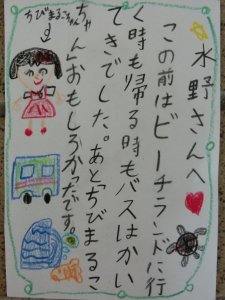 水野さんへ
この前はビーチランドに行
く時も帰る時もバスはかい
てきでした。あと「ちびまるこ
ちゃん」おもしろかったです。
ちびまるこちゃん
です